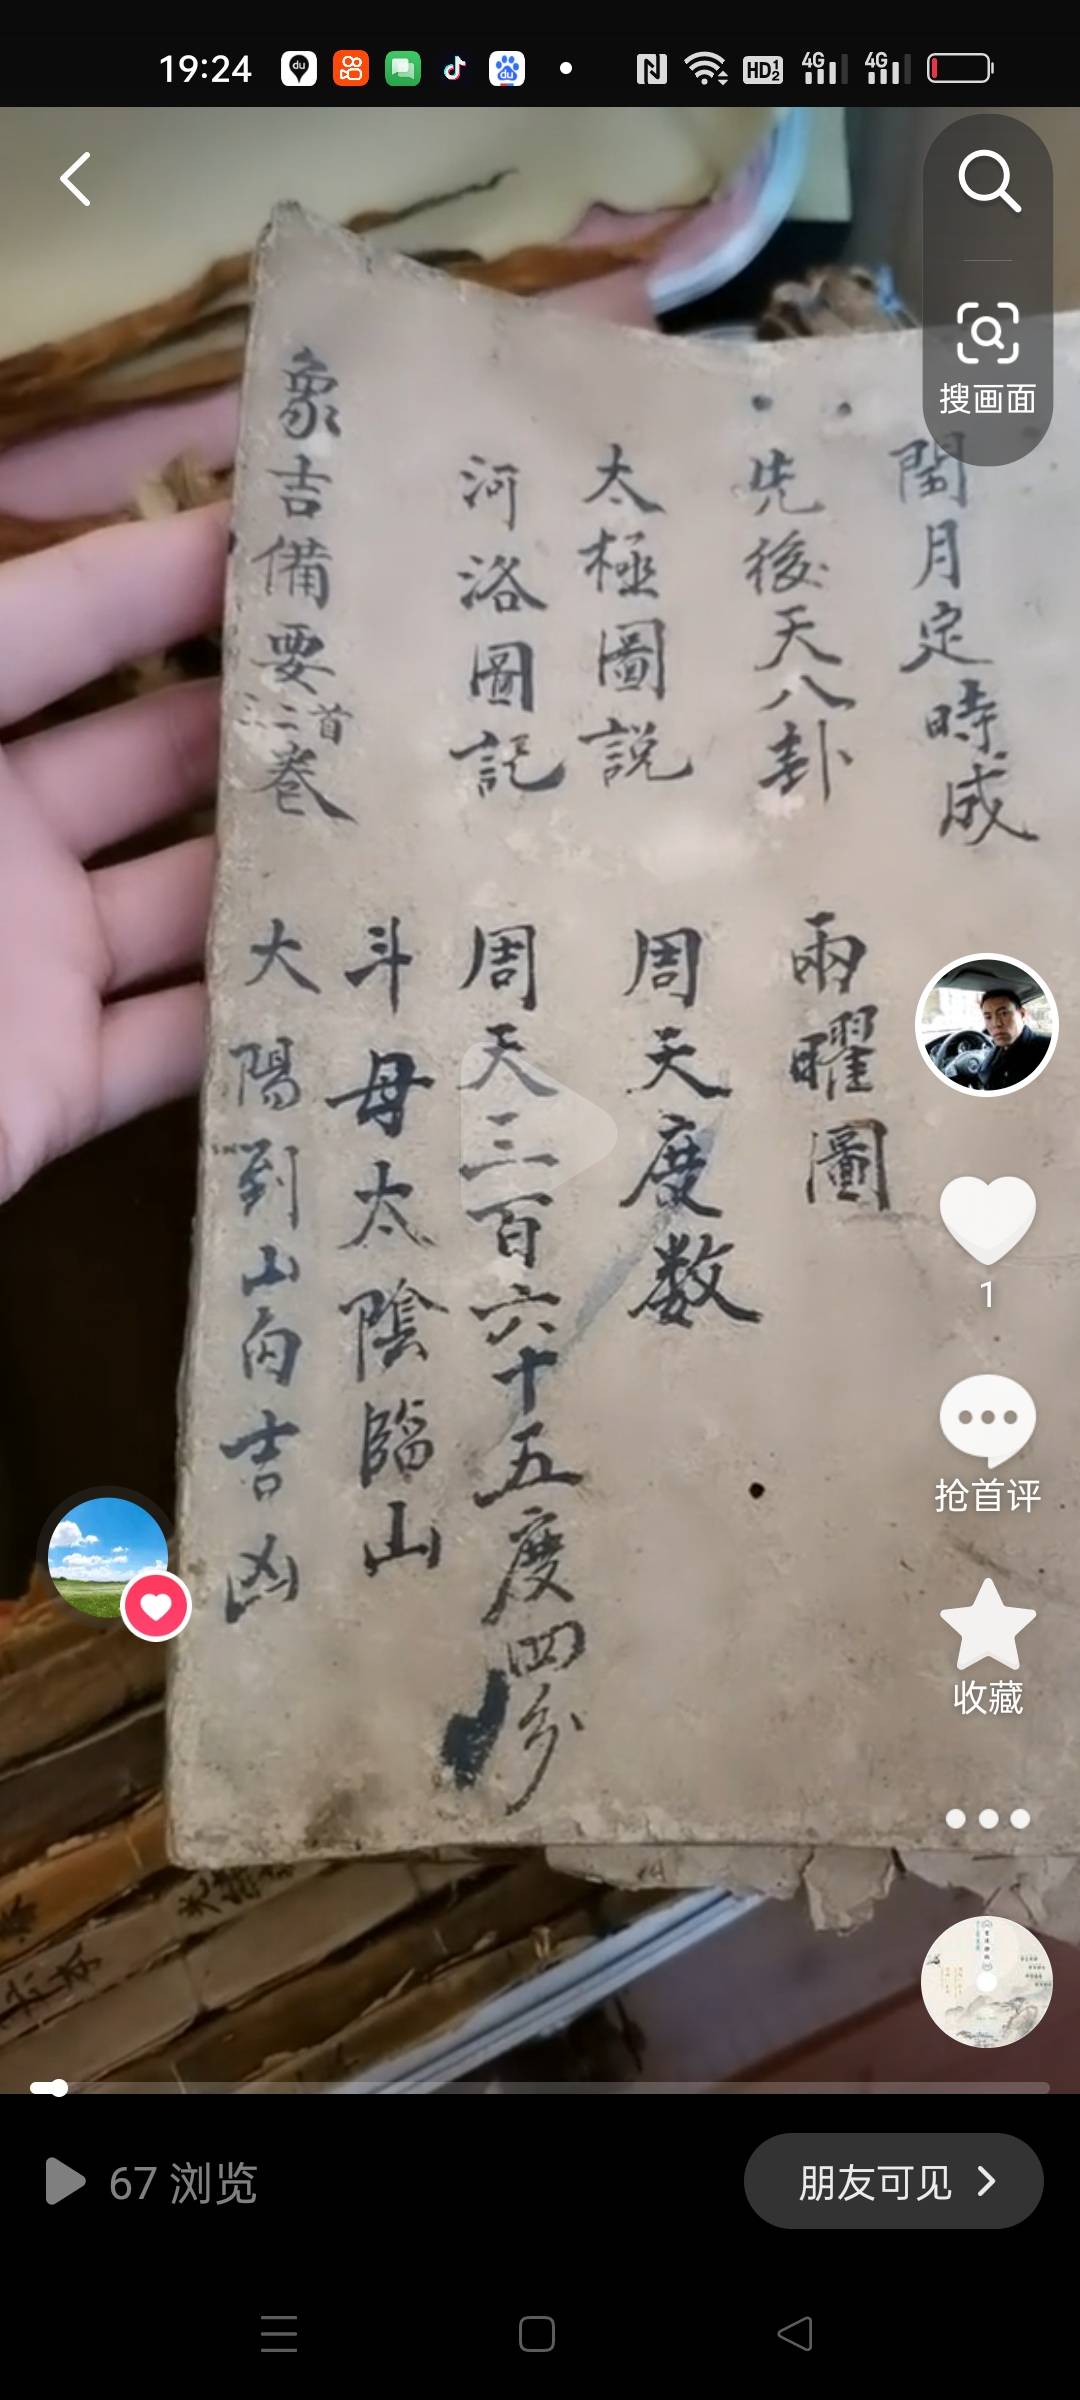 19:24
搜画面
閏月定時成
先後天八卦
太極圖説
河洛圖記
象吉備要
二首
卷
兩曜圖
周天度数
周天三百六十五度四分
斗母太陰臨山
大陽到山向吉凶
1
抢首评
收藏
67 浏览
朋友可见